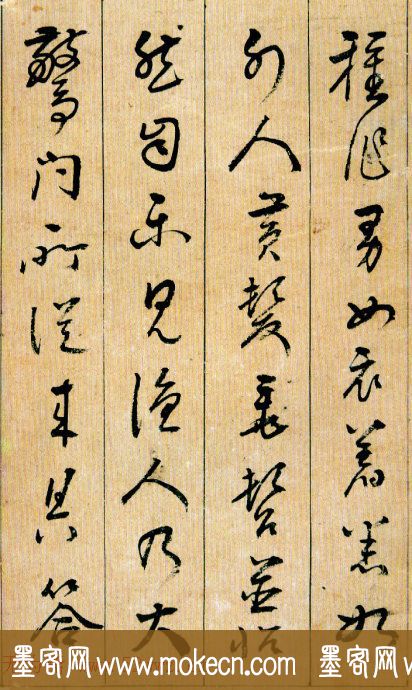 種作男女衣著悉如
外人黃髮垂髫並怡
然自樂見漁人乃大
驚問所從來具答
墨客网 www.mokecn.com 墨客网